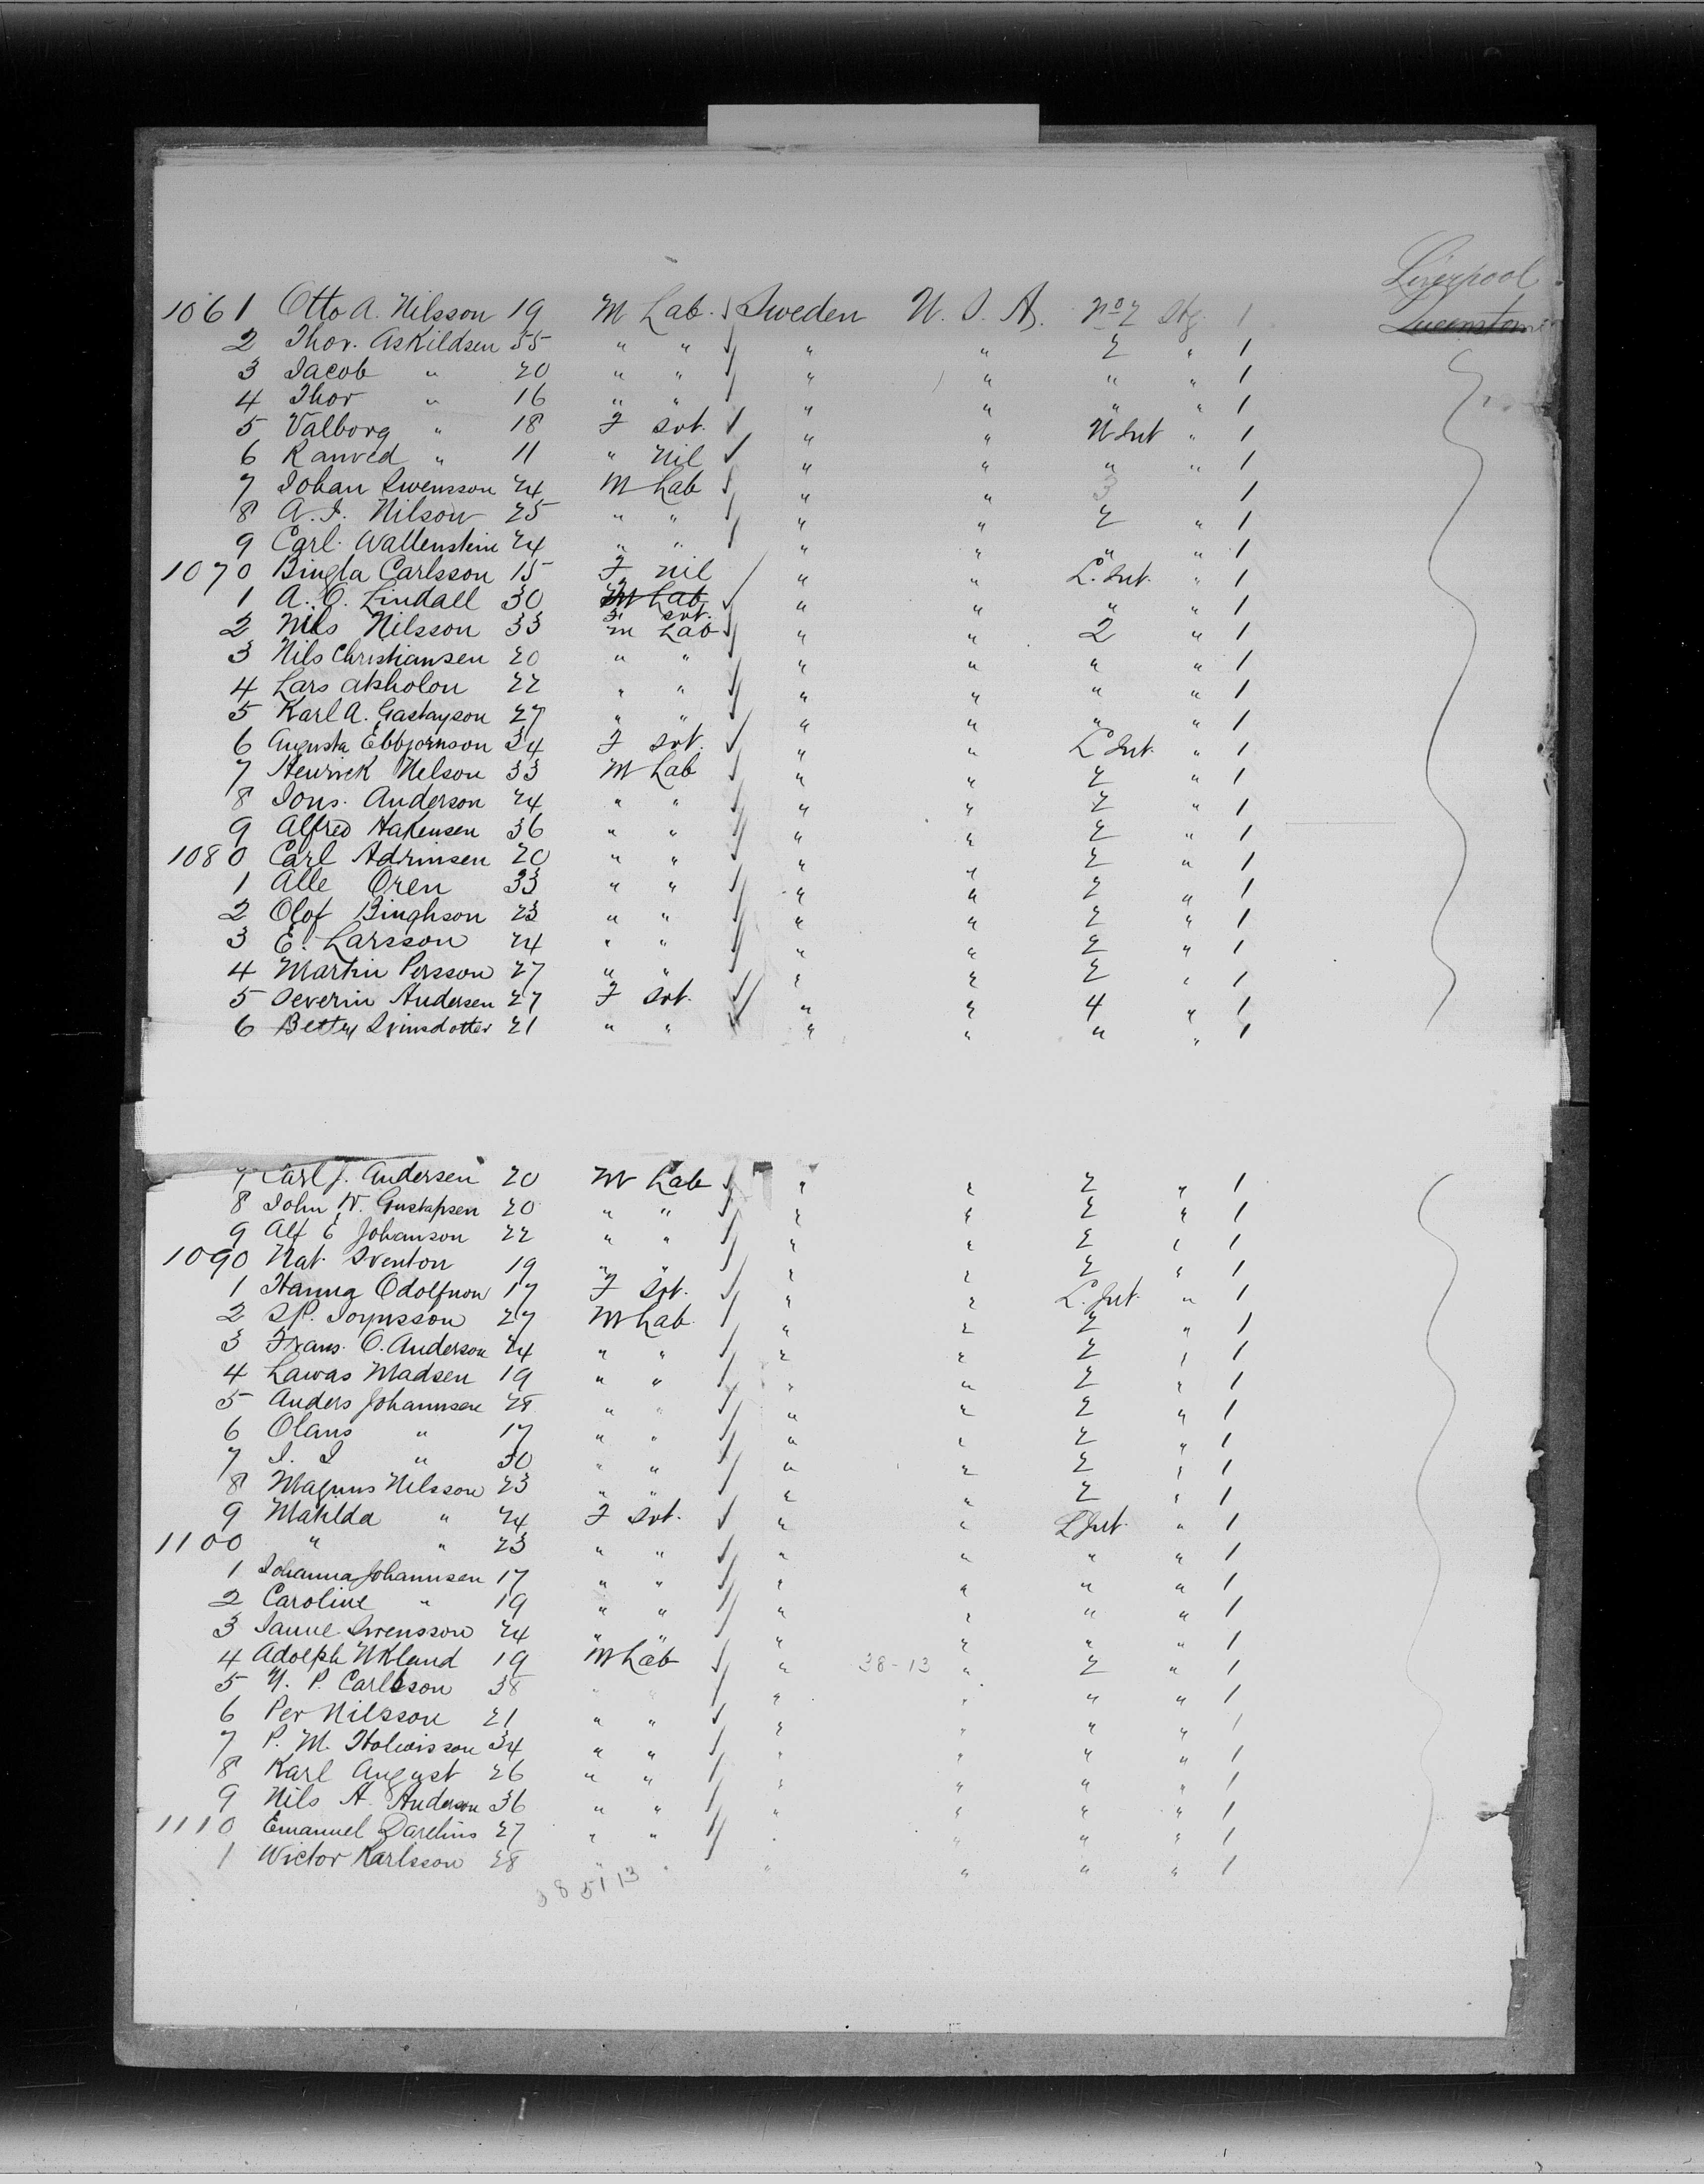 Liverpool
1061 Otto A. Nilsson 19 M Lab. Sweden U. S. A. No 2 Stg. 1 ~~Queenstown~~
2 Thor. Askildsen 55 " " " " 2 " 1
3 Jacob " 20 " " " " " " 1
4 Thor " 16 " " " " " " 1
5 Valborg " 18 F Svt. " " U Int " 1
6 Ranved " 11 " Nil " " " " 1
7 Johan Swensson 24 M Lab " " 3 1
8 A. J. Nilson 25 " " " " 2 " 1
9 Carl. Wallenstein 24 " " " " " " 1
1070 Bingta Carlsson 15 F nil " " L. Int. " 1
1 A. O. Lindall 30 ~~M Lab~~ F Svt. " " " " 1
2 Nils Nilsson 33 M Lab " " 2 " 1
3 Nils Christiansen 20 " " " " " " 1
4 Lars Akholon 22 " " " " " " 1
5 Karl A. Gastayson 27 " " " " " " 1
6 Augusta Ebbjornson 34 F Svt. " " L Int. " 1
7 Henrick Nelson 33 M Lab " " 2 " 1
8 Jons. Anderson 24 " " " " 2 " 1
9 Alfred Hakensen 36 " " " " 2 " 1
1080 Carl Adrinsen 20 " " " " 2 " 1
1 Alle Oren 33 " " " " 2 " 1
2 Olof Binghson 23 " " " " 2 " 1
3 E. Larsson 24 " " " " 2 " 1
4 Martin Persson 27 " " " " 2 " 1
5 Severin Andersen 27 F Svt. " " 4 " 1
6 Betty Svinsdotter 21 " " " " " " 1
7 Carl J. Andersen 20 M Lab " " 2 " 1
8 John W. Gustafsen 20 " " " " 2 " 1
9 Alf E Johanson 22 " " " " 2 " 1
1090 Nat. Sventon 19 " " " " 2 " 1
1 Hanna Odolfnon 17 F Svt. " " L. Int. " 1
2 S P. 27 M Lab " " 2 " 1
3 Frans. O. Anderson 24 " " " " 2 " 1
4 Lawas Madsen 19 " " " " 2 " 1
5 Anders Johannsen 28 " " " " 2 " 1
6 Olaus " 17 " " " " 2 " 1
7 J. J " 30 " " " " 2 " 1
8 Magnus Nilsson 23 " " " " 2 " 1
9 Mahlda " 24 F Svt. " " L Int. " 1
1100 " " 23 " " " " " " 1
1 Johanna Johannsen 17 " " " " " " 1
2 Caroline " 19 " " " " " " 1
3 Janne Swensson 24 " " " " " " 1
4 Adolph Ukland 19 M Lab " 38-13 " 2 " 1
5 N. P. Carlsson 38 " " " " " " 1
6 Per Nilsson 21 " " " " " " 1
7 P. M. 34 " " " " " " 1
8 Karl August 26 " " " " " " 1
9 Nils A. Anderson 36 " " " " " " 1
1110 Emanuel Darelius 27 " " " " " " 1
1 Wictor Karlsson 28 " " " " " " 1
385113